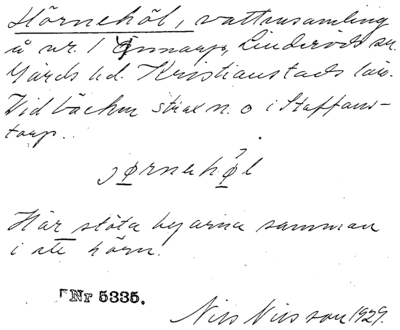 Hörnehöl, vattensamling
å nr. 1 Linderöds sn.
Gärds hd. Kristianstads län.
Vid bäcken strax n. o i Staffans-
torp.
hø̱rnehø̱l
Här stöta byarna samman
i ett hörn.
Nr 5335.
Nils Nilsson 1929.